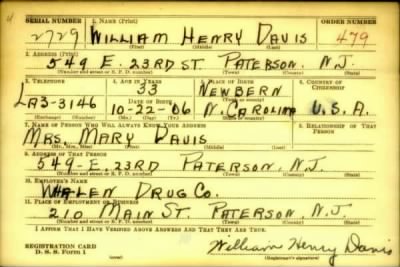 SERIAL NUMBER 1. NAME (Print) ORDER NUMBER
2729 WILLIAM HENRY DAVIS 479
(First) (Middle) (Last)
2. ADDRESS (Print)
549 E. 23RD ST. PATERSON. N.J.
(Number and street or R. F. D. number) (Town) (County) (State)
3. TELEPHONE 4. AGE IN YEARS 5. PLACE OF BIRTH 6. COUNTRY OF CITIZENSHIP
33 NEWBERN
LA3-3146 DATE OF BIRTH (Town or county)
10-22-06 N. CAROLINA U.S.A.
(Exchange) (Number) (Mo.) (Day) (Yr.) (State or country)
7. NAME OF PERSON WHO WILL ALWAYS KNOW YOUR ADDRESS 8. RELATIONSHIP OF THAT PERSON
MRS. MARY DAVIS
(Mr., Mrs., Miss) (First) (Middle) (Last)
9. ADDRESS OF THAT PERSON
549-E. 23RD PATERSON N.J.
(Number and street or R. F. D. number) (Town) (County) (State)
10. EMPLOYER'S NAME
WHALEN DRUG CO.
11. PLACE OF EMPLOYMENT OR BUSINESS
210 MAIN ST. PATERSON. N.J.
(Number and street or R. F. D. number) (Town) (County) (State)
I AFFIRM THAT I HAVE VERIFIED ABOVE ANSWERS AND THAT THEY ARE TRUE.
REGISTRATION CARD
D. S. S. Form 1 William Henry Davis
(Registrant's signature)